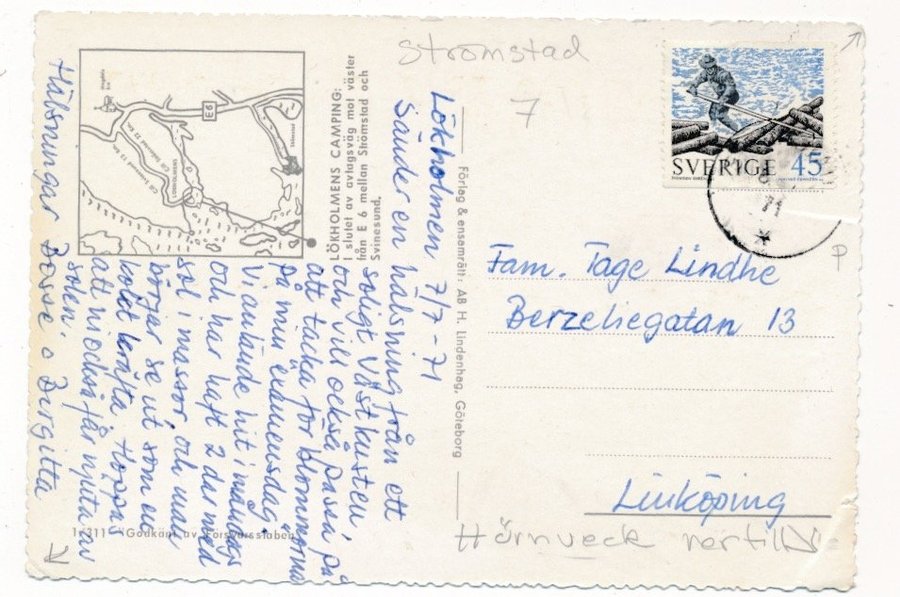 Strömstad
7
SVERIGE 45
71
P
Fam. Tage Lindhe
Berzeliegatan 13
Linköping
Hörnveck
Förlag & ensamrätt: AB H. Lindenhag, Göteborg
LÖKHOLMENS CAMPING:
I slutet av avtagsväg mot väster
från E 6 mellan Strömstad och
Svinesund.
E6
Lökholmen 7/7-71
Sänder en hälsning från ett
soligt Västkusten
och vill också passa på
att tacka för blommorna
på min examensdag.
Vi anlände hit i måndags
och har haft 2 dar med
sol i massor och man
börjar se ut som en
kokt kräfta. Hoppas
att ni också får njuta av
solen.
Hälsningar Bosse o Birgitta
1/311 Godkänt av Försvarsstaben